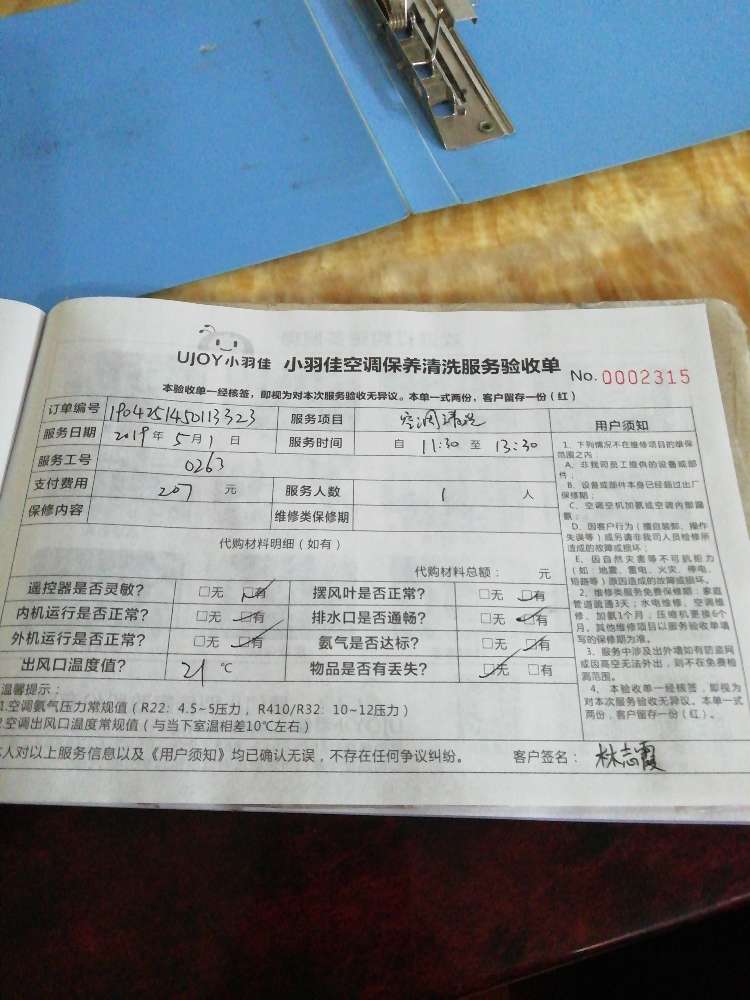 UJOY小羽佳 小羽佳空调保养清洗服务验收单 No. 0002315
本验收单一经核签，即视为对本次服务验收无异议。本单一式两份，客户留存一份（红）
订单编号 190425145011332​3 服务项目 空调清洗
服务日期 2019 年 5 月 1 日 服务时间 自 11:30 至 13:30
服务工号 0263
支付费用 207 元 服务人数 1 人
保修内容 维修类保修期
代购材料明细（如有）
代购材料总额： 元
遥控器是否灵敏? □无 □有 摆风叶是否正常? □无 □有
内机运行是否正常? □无 □有 排水口是否通畅? □无 □有
外机运行是否正常? □无 □有 氨气是否达标? □无 □有
出风口温度值? 21 ℃ 物品是否有丢失? □无 □有
温馨提示：
1.空调氨气压力常规值（R22: 4.5~5压力，R410/R32: 10~12压力）
2.空调出风口温度常规值（与当下室温相差10℃左右）
人对以上服务信息以及《用户须知》均已确认无误，不存在任何争议纠纷。 客户签名： 林志霞
用户须知
1、下列情况不在维修项目的维保
范围之内
A、非我司员工提供的设备或部
件；
B、设备或部件本身已经超过出厂
保修期；
C、空调空机加氨或空调内部漏
氨；
D、因客户行为（擅自装卸、操作
失误等）或另请非我司人员检修所
造成的故障或损坏；
E、因自然灾害等不可抗拒力
（如：地震、雷电、火灾、停电、
短路等）原因造成的故障或损坏。
2、维修类服务免费保修期：家庭
管道疏通3天；水电维修、空调维
修、加氨1个月；压缩机更换6个
月，其他维修项目以服务验收单填
写的保修期为准。
3、服务中涉及出外墙如有防盗网
或因高空无法外出，则不在免费检
高范围。
4、本验收单一经核签，即视为
对本次服务验收无异议。本单一式
两份，客户留存一份（红）。